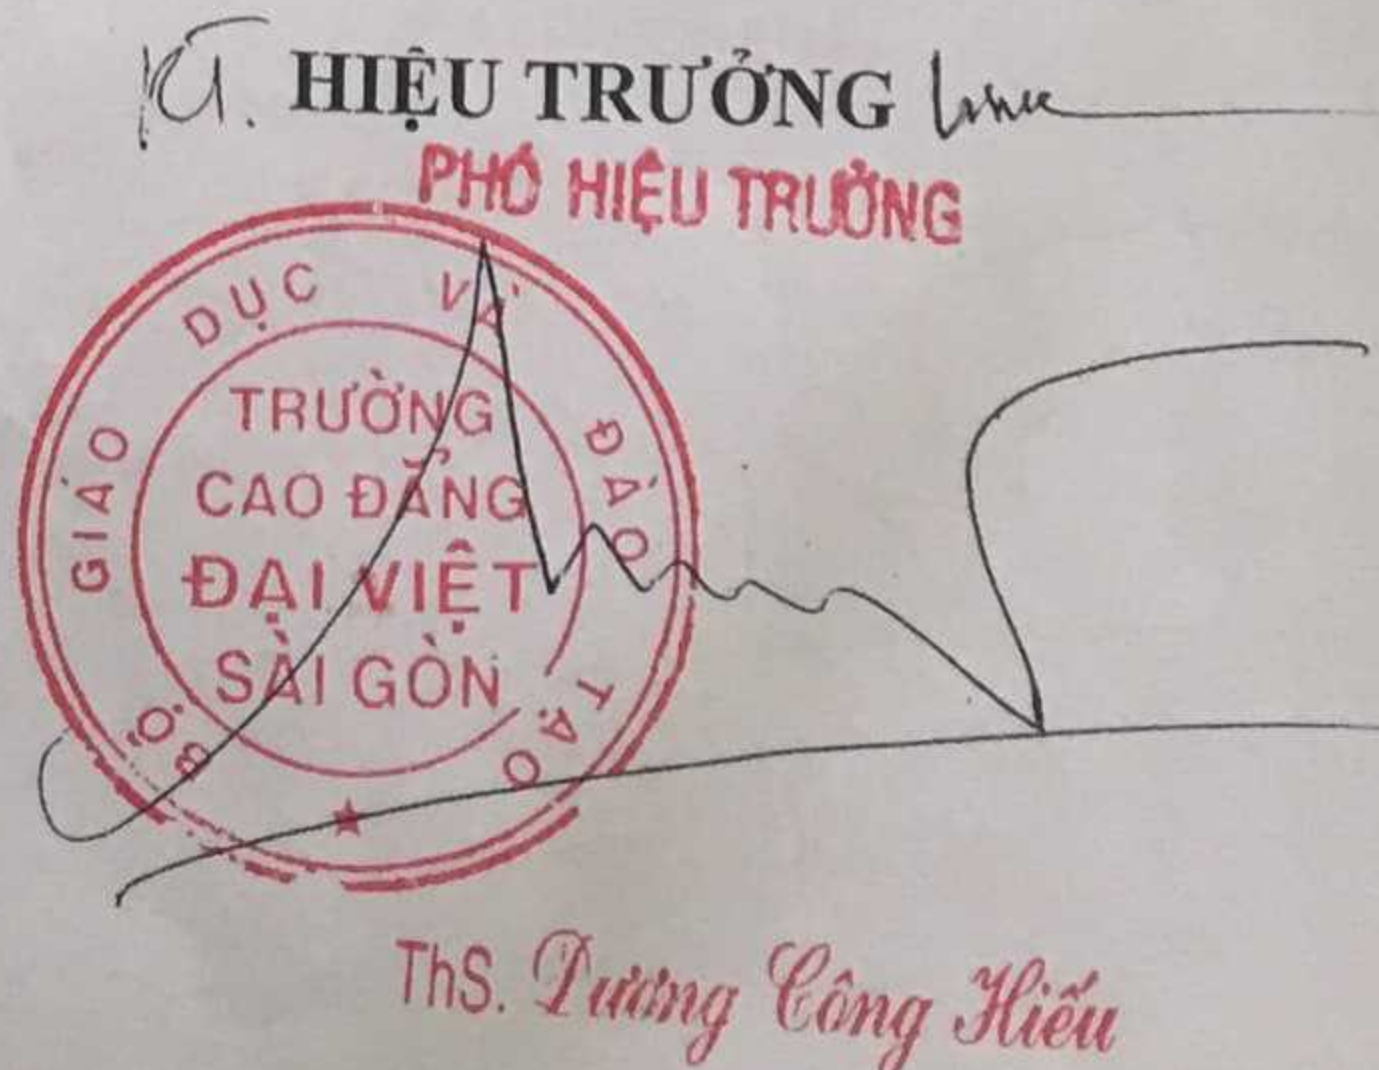 KT. HIỆU TRƯỞNG
PHÓ HIỆU TRƯỞNG
BỘ GIÁO DỤC VÀ ĐÀO TẠO
TRƯỜNG
CAO ĐẲNG
ĐẠI VIỆT
SÀI GÒN
ThS. Dương Công Hiếu